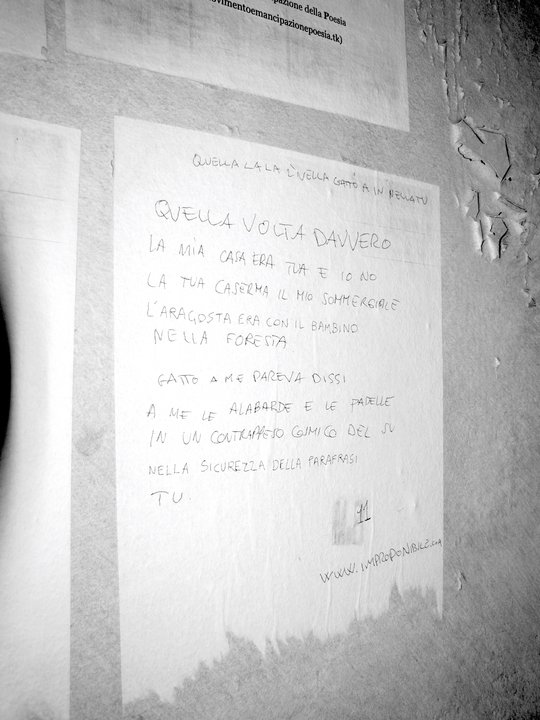 pazione della Poesia
ovimentoemancipazionepoesia.tk)
QUELLA LA LA
QUELLA VOLTA DAVVERO
LA MIA CASA ERA TUA E IO NO
LA TUA CASERMA IL MIO SOMMERGIBILE
L'ARAGOSTA ERA CON IL BAMBINO
NELLA FORESTA
GATTO A ME PAREVA DISSI
A ME LE ALABARDE E LE PADELLE
IN UN CONTRAPPESO COSMICO DEL SU
NELLA SICUREZZA DELLA PARAFRASI
TU.
11